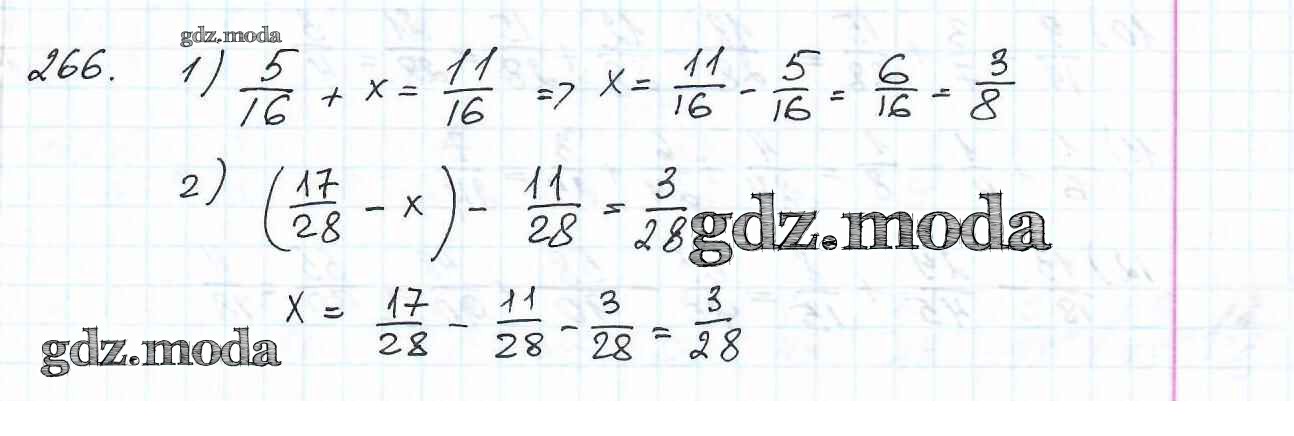 gdz.moda
266. 1) 5/16 + x = 11/16 => x = 11/16 - 5/16 = 6/16 = 3/8
2) (17/28 - x) - 11/28 = 3/28
gdz.moda
x = 17/28 - 11/28 - 3/28 = 3/28
gdz.moda